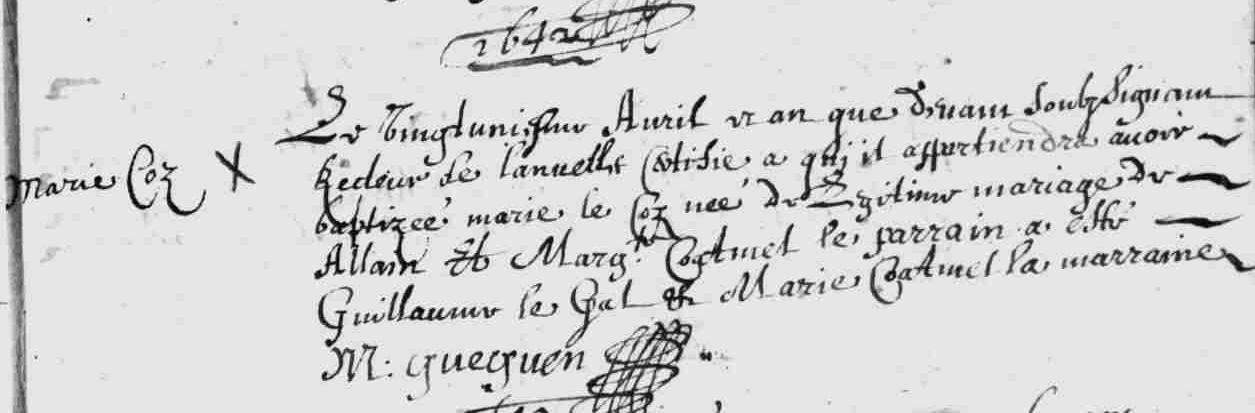 1642
Marie Coz X
Le vingtuniesme Auril et an que deuant soubzsignant
Recteur de lanuellec certifie a qui il appartiendra auoir
baptizeé marie le Coz neé de Legitime mariage de
Allain & Marg.te Coatmel le parrain a esté
Guillaume le Gal & Marie Coatmel la marraine
M: gueguen